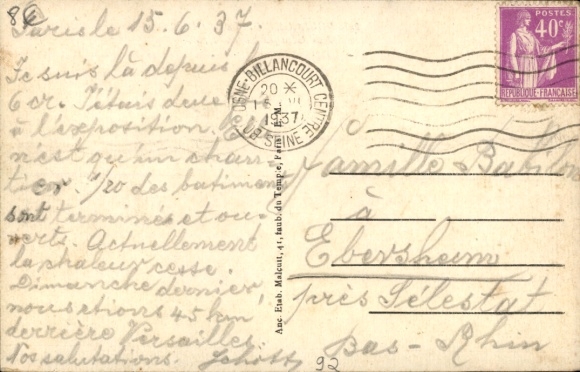 Paris le 15.6.37.
Je suis là depuis le
6 cr. J'étais deux
à l'exposition. Elle
n'est qu'un chan-
tier. 1/20 des batiments
sont terminés et ou-
verts. Actuellement
la chaleur cesse.
Dimanche dernier,
nous étions 45 km
derrière Versailles.
Nos salutations. Schott
BOULOGNE-BILLANCOURT CENTRE
20 *
1937
SEINE
POSTES
40c
REPUBLIQUE FRANÇAISE
Anc. Etab. Malcuit, 41, faub. du Temple, Paris
Famille
à
Ebersheim
près Sélestat
Bas-Rhin
92